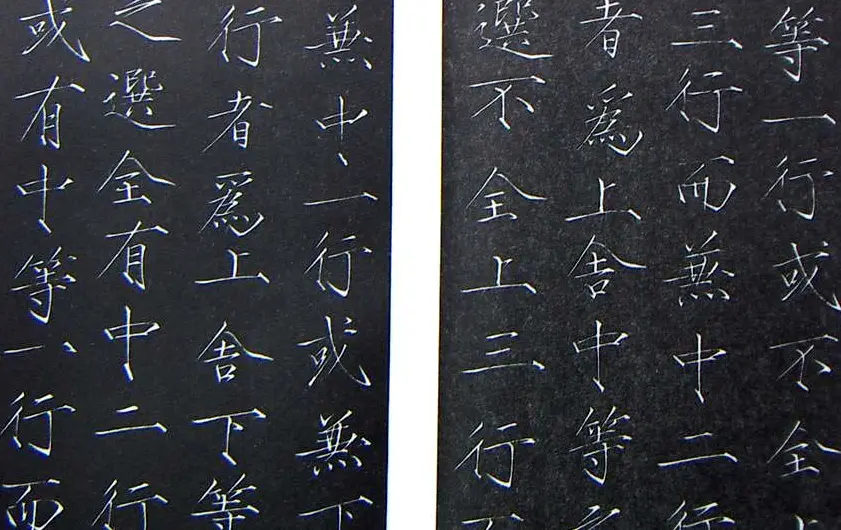 等一行或不全上
三行而無中二行
者爲上舍中等
選不全上三行
無中一行或無下
行者爲上舍下等
之選全有中二行
或有中等一行而